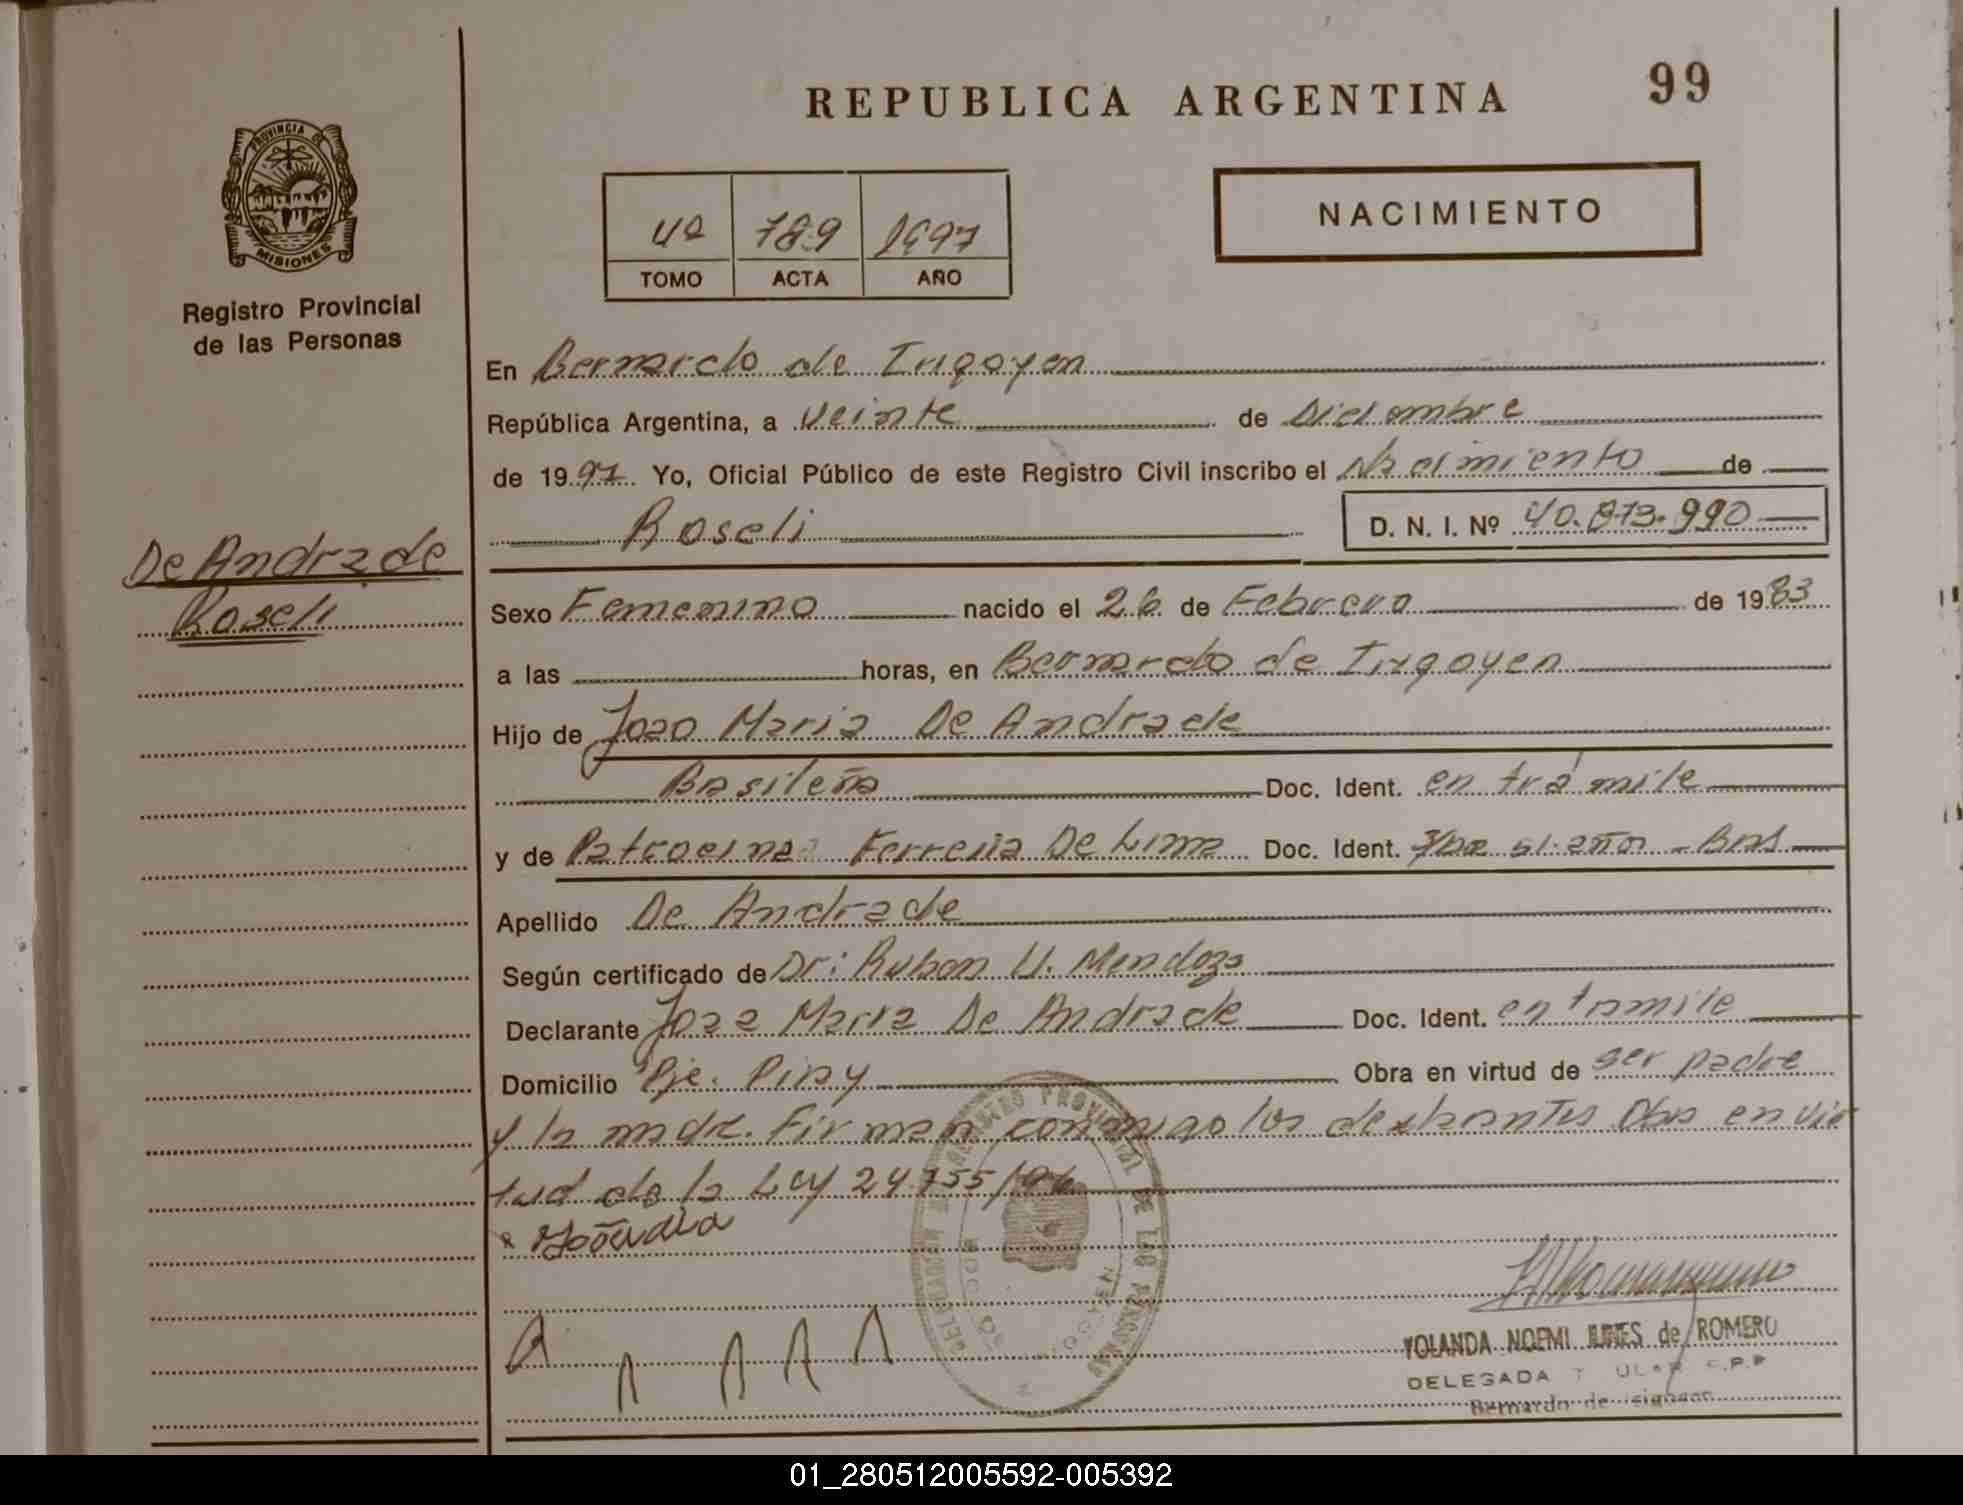 REPUBLICA ARGENTINA
99
PROVINCIA DE
MISIONES
Registro Provincial
de las Personas
4º 789 1997
TOMO ACTA AÑO
NACIMIENTO
En Bernardo de Irigoyen
República Argentina, a Veinte de Diciembre
de 1997 Yo, Oficial Público de este Registro Civil inscribo el Nacimiento de
Roseli D. N. I. Nº 40.873.990
De Andrade
Roseli
Sexo Femenino nacido el 26 de Febrero de 1983
a las horas, en Bernardo de Irigoyen
Hijo de Joao Maria De Andrade
Basileña Doc. Ident. en trámite
y de Patrocina Ferreira De Lima Doc. Ident. 51 años - Bras
Apellido De Andrade
Según certificado de Dr: Ruben U. Mendoza
Declarante Joao Maria De Andrade Doc. Ident. en tramite
Domicilio Pje. Piray Obra en virtud de ser padre
y la madre. Firman conmigo los declarantes Obs en vir
tud de la Ley 24.755/96
YOLANDA NOEMI de ROMERO
DELEGADA TITULAR R.P.P
Bernardo de Irigoyen
01_280512005592-005392